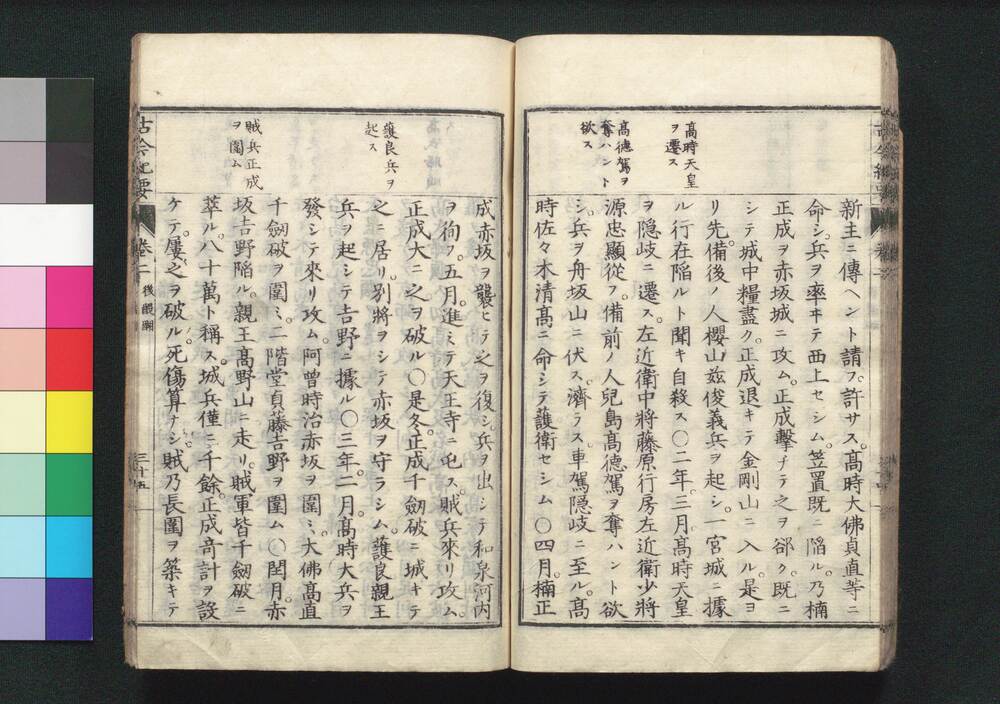 高時天皇
ヲ遷ス
高德駕ヲ
奪ハント
欲ス
新主ニ傳ヘント請フ。許サス。高時大佛貞直等ニ
命シ。兵ヲ率ヰテ西上セシム。笠置既ニ陷ル。乃楠
正成ヲ赤坂城ニ攻ム。正成擊チテ之ヲ郤ク。既ニ
シテ城中糧盡ク。正成退キテ金剛山ニ入ル。是ヨ
リ先備後ノ人櫻山玆俊義兵ヲ起シ。一宮城ニ據
ル行在陷ルト聞キ自殺ス〇二年。三月。高時天皇
ヲ隱岐ニ遷ス。左近衛中將藤原行房左近衛少將
源忠顯從フ。備前ノ人兒島高德駕ヲ奪ハント欲
シ。兵ヲ舟坂山ニ伏ス。濟ラス。車駕隱岐ニ至ル。高
時佐々木清高ニ命シテ護衛セシム〇四月。楠正
護良兵ヲ
起ス
賊兵正成
ヲ圍ム
成赤坂ヲ襲ヒテ之ヲ復シ。兵ヲ出シテ和泉河内
ヲ徇フ。五月。進ミテ天王寺ニ屯ス。賊兵來リ攻ム。
正成大ニ之ヲ破ル〇是冬。正成千劔破ニ城キテ
之ニ居リ。別將ヲシテ赤坂ヲ守ラシム。護良親王
兵ヲ起シテ吉野ニ據ル〇三年。二月。高時大兵ヲ
發シテ來リ攻ム。阿曾時治赤坂ヲ圍ミ。大佛高直
千劔破ヲ圍ミ。二階堂貞藤吉野ヲ圍ム〇閏月。赤
坂吉野陷ル。親王高野山ニ走リ。賊軍皆千劔破ニ
萃ル。八十萬ト稱ス。城兵僅ニ千餘。正成奇計ヲ設
ケテ。屢之ヲ破ル。死傷算ナシ。賊乃長圍ヲ築キテ
古今紀要
卷二
後醍醐
三十五